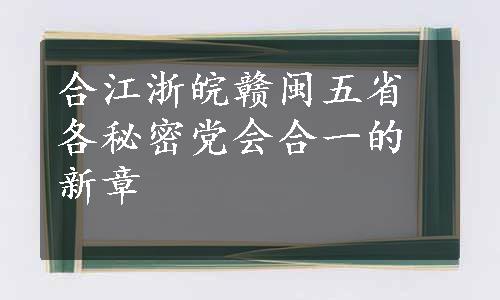 合江浙皖赣闽五省
各秘密党会合一的
新章